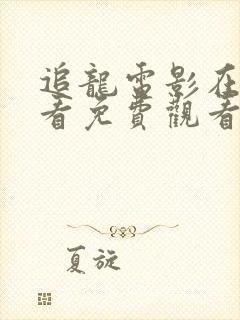 追龍電影在
看免費觀看
夏旋